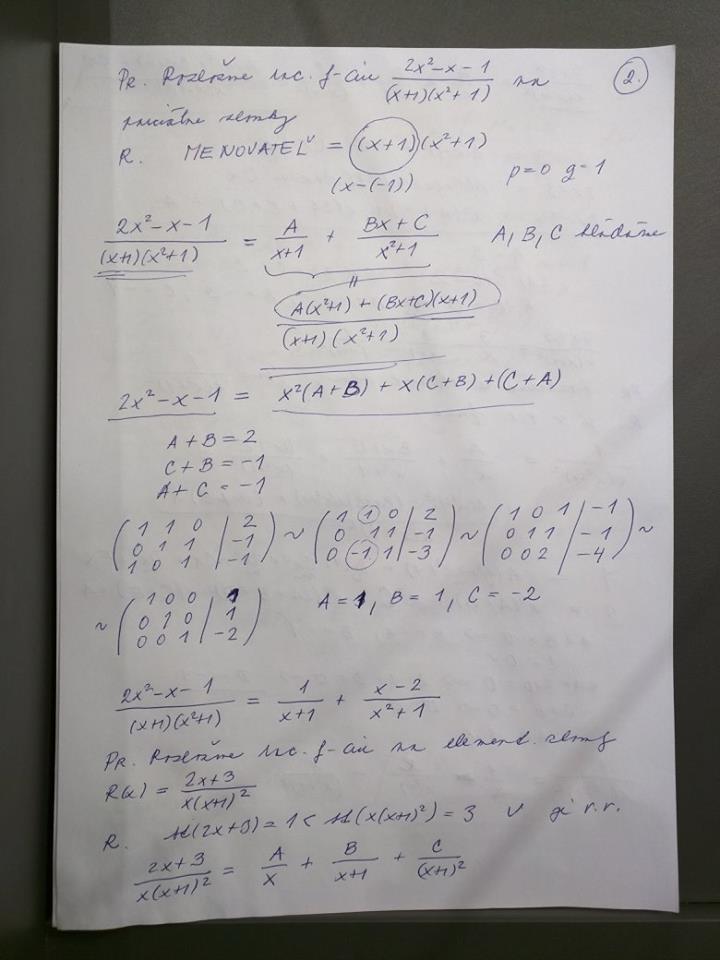 2.
Pr. Rozložme rac. f-ciu (2x²-x-1)/((x+1)(x²+1)) na
parciálne zlomky
R. MENOVATEĽ = (x+1)(x²+1)
(x-(-1))
p=0 q=1
(2x²-x-1)/((x+1)(x²+1)) = A/(x+1) + (Bx+C)/(x²+1) A, B, C hľadáme
(A(x²+1) + (Bx+C)(x+1))/((x+1)(x²+1))
2x²-x-1 = x²(A+B) + x(C+B) + (C+A)
A+B=2
C+B=-1
A+C=-1
(1 1 0 | 2) ~ (1 1 0 | 2) ~ (1 0 1 | -1) ~
(0 1 1 | -1) (0 1 1 | -1) (0 1 1 | -1)
(1 0 1 | -1) (0 -1 1 | -3) (0 0 2 | -4)
~ (1 0 0 | 1) A=1, B=1, C=-2
(0 1 0 | 1)
(0 0 1 | -2)
(2x²-x-1)/((x+1)(x²+1)) = 1/(x+1) + (x-2)/(x²+1)
Pr. Rozložme rac. f-ciu na element. zlomky
R(x) = (2x+3)/(x(x+1)²)
R. st(2x+3)=1 < st(x(x+1)²)=3 r.r.
(2x+3)/(x(x+1)²) = A/x + B/(x+1) + C/(x+1)²